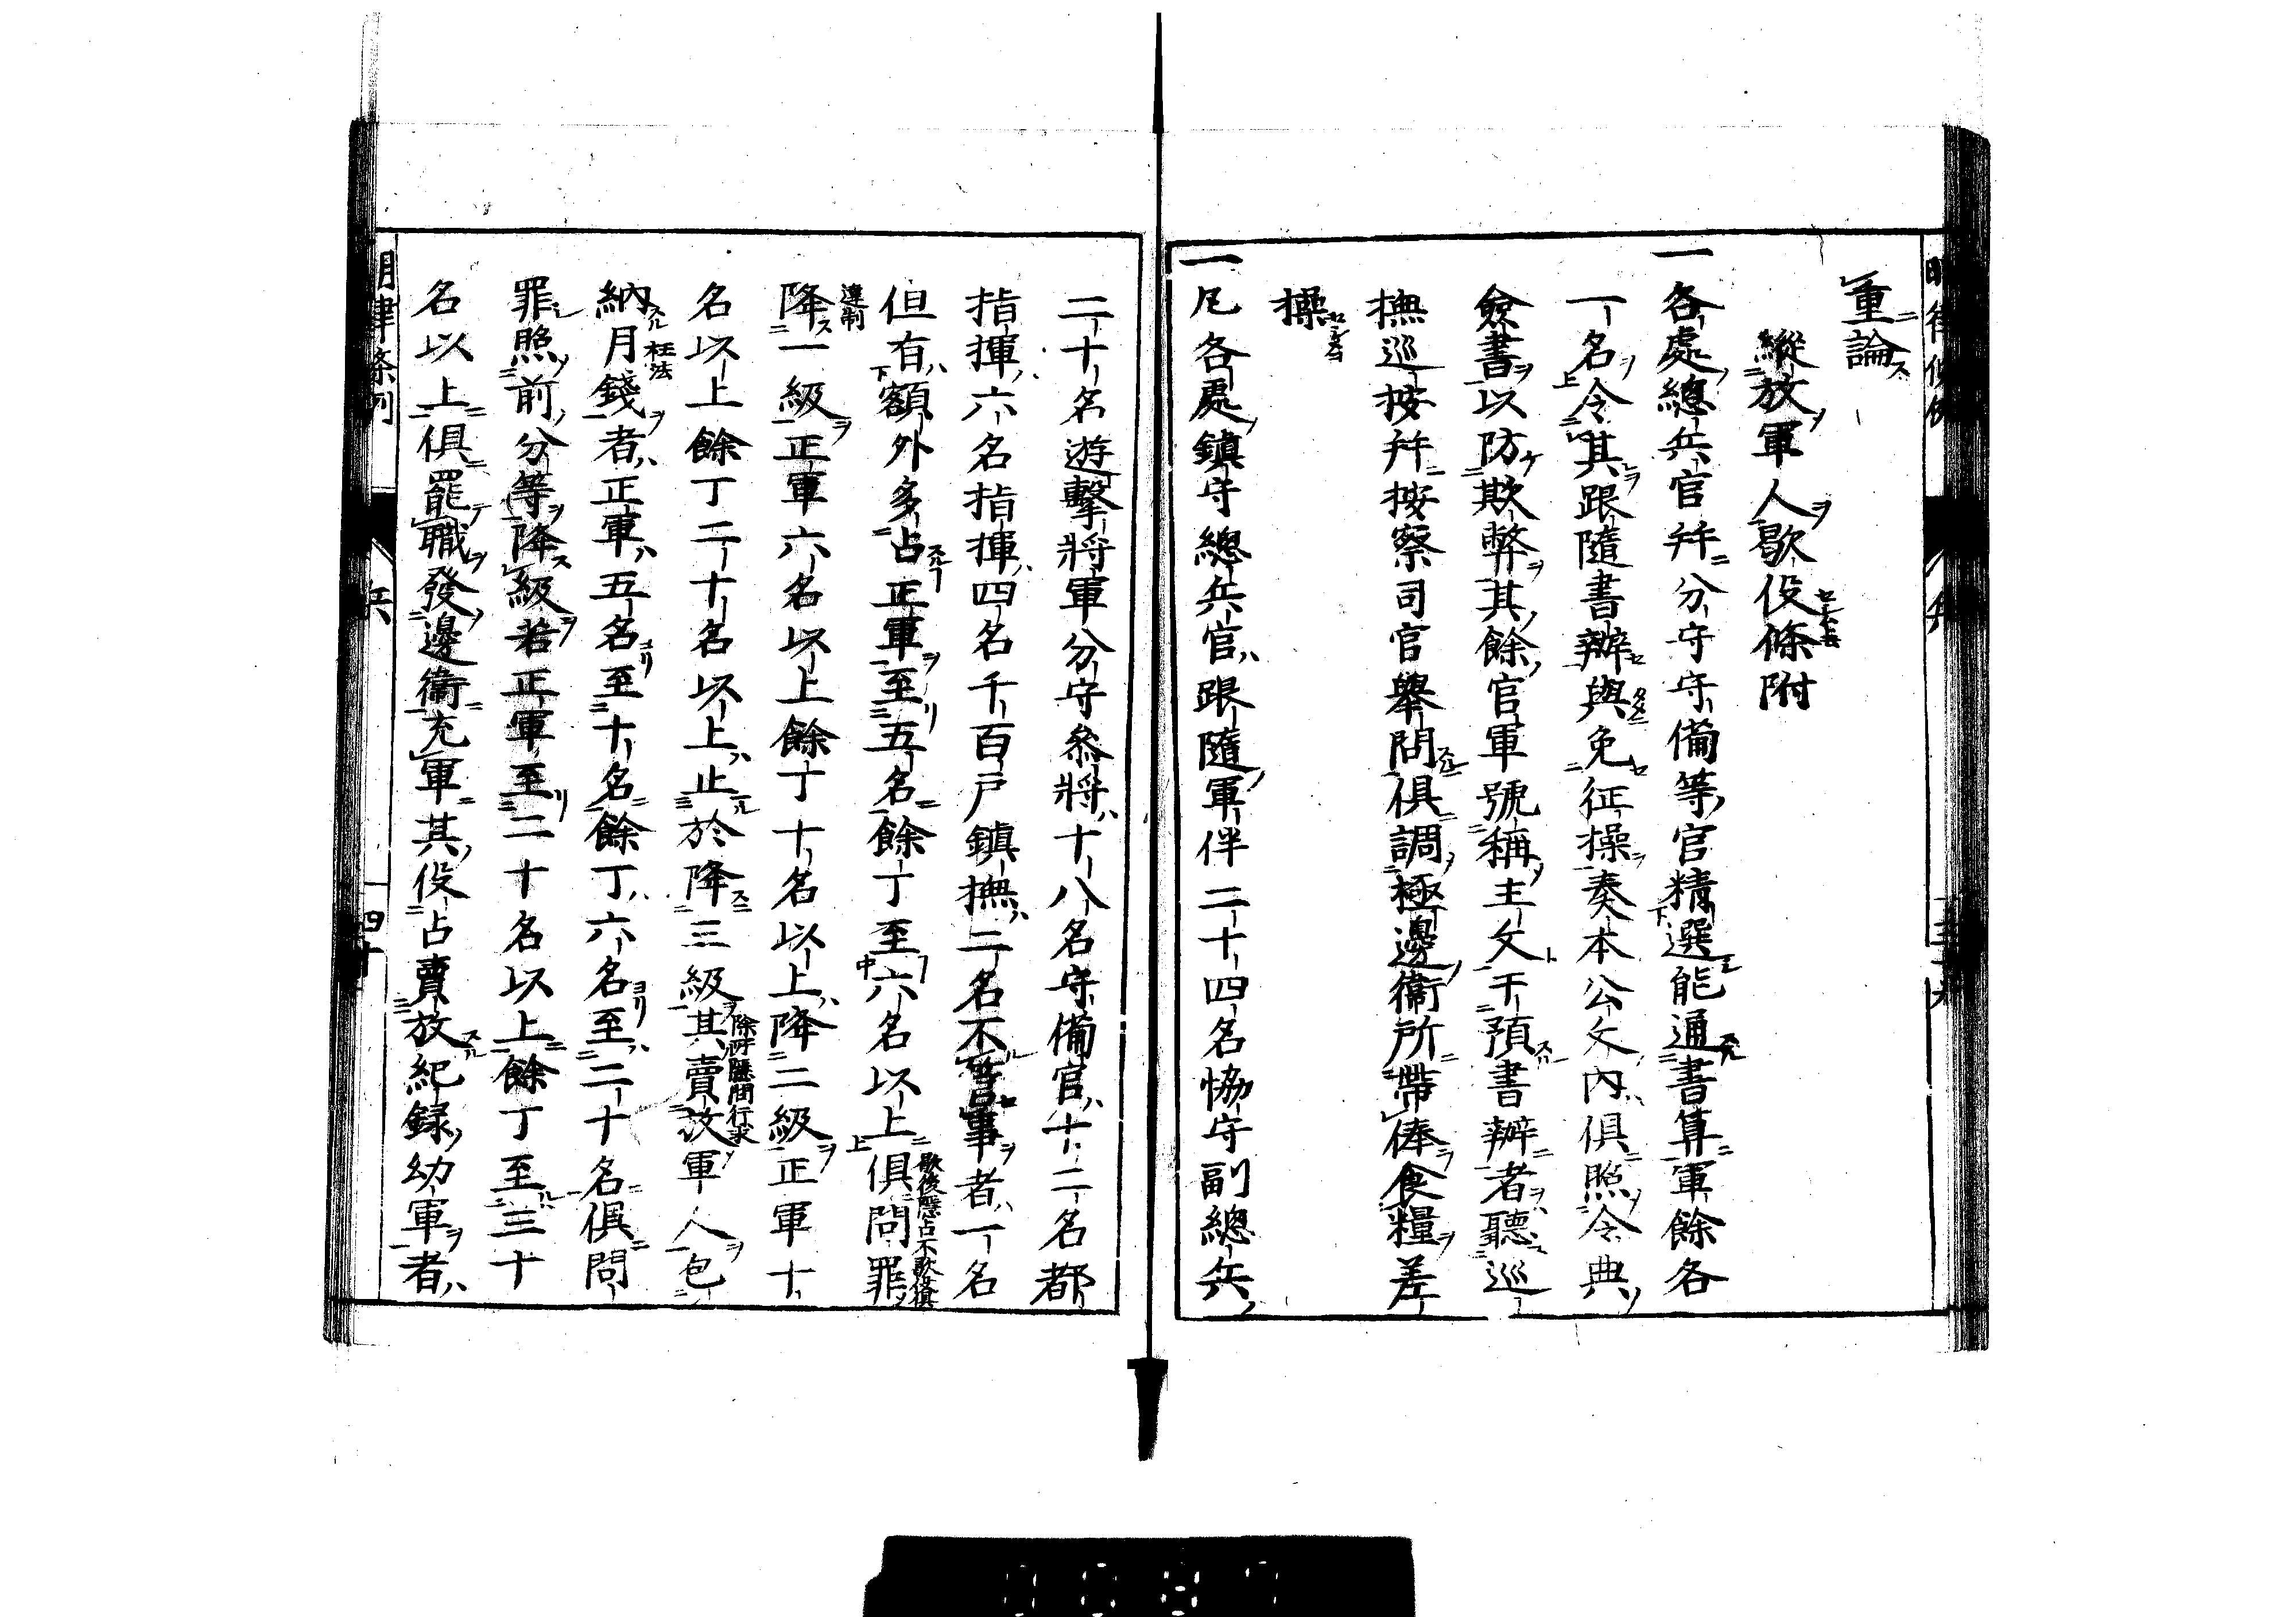 重論
縱放軍人歇役條附
一各處總兵官幷分守守備等官精選能通書算軍餘各
一名令其跟隨書辦與免征操奏本公文內俱照令典
僉書以防欺弊其餘官軍號稱主文干預書辦者聽巡
撫巡按幷按察司官舉問俱調極邊衞所帶俸食糧差
操
一凡各處鎮守總兵官跟隨軍伴二十四名協守副總兵
二十名遊擊將軍分守參將十八名守備官十二名都
指揮六名指揮四名千百戶鎮撫二名不管事者一名
但有額外多占正軍至五名餘丁至六名以上俱問罪
違制
降一級正軍六名以上餘丁十名以上降二級正軍十
名以上餘丁二十名以上止於降三級其賣放軍人包
納月錢者正軍五名至十名餘丁六名至二十名俱問
枉法
罪照前分等降級若正軍至二十名以上餘丁至三十
名以上俱罷職發邊衞充軍其役占賣放紀録幼軍者
明律條例
兵
四十